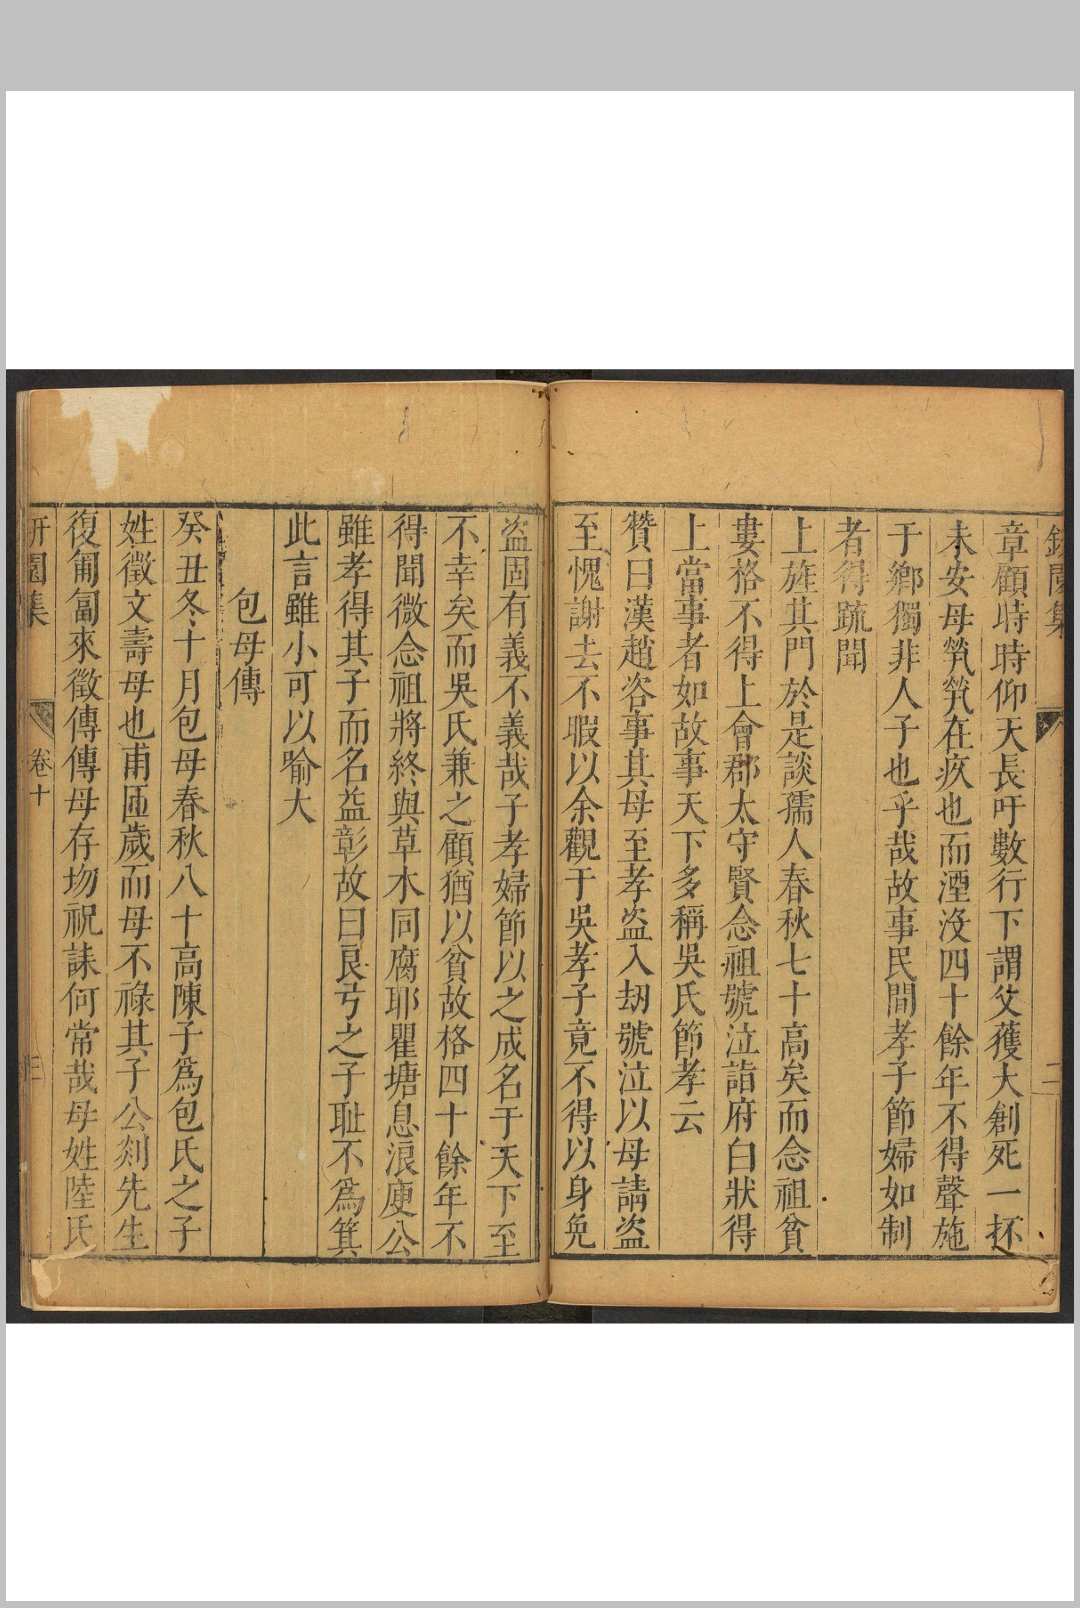 章顧時時仰天長吁數行下謂父獲大創死一抔
未安母煢煢在疚也而湮沒四十餘年不得聲施
于鄉獨非人子也乎哉故事民間孝子節婦如制
者得䟽聞
上旌其門於是談孺人春秋七十高矣而念祖貧
婁格不得上會郡太守賢念祖號泣詣府白狀得
上當事者如故事天下多稱吳氏節孝云
贊曰漢趙咨事其母至孝盗入刼號泣以母請盗
至愧謝去不暇以余觀于吳孝子竟不得以身免
盗固有義不義哉子孝婦節以之成名于天下至
不幸矣而吳氏兼之顧猶以貧故格四十餘年不
得聞微念祖將終與草木同腐耶瞿塘息浪庾公
雖孝得其子而名益彰故曰良弓之子恥不爲箕
此言雖小可以喻大
包母傳
癸丑冬十月包母春秋八十高陳子爲包氏之子
姓徵文壽母也甫匝歲而母不祿其子公剡先生
復匍匐來徵傳傳母存歿祝誄何常哉母姓陸氏
集
卷十
三